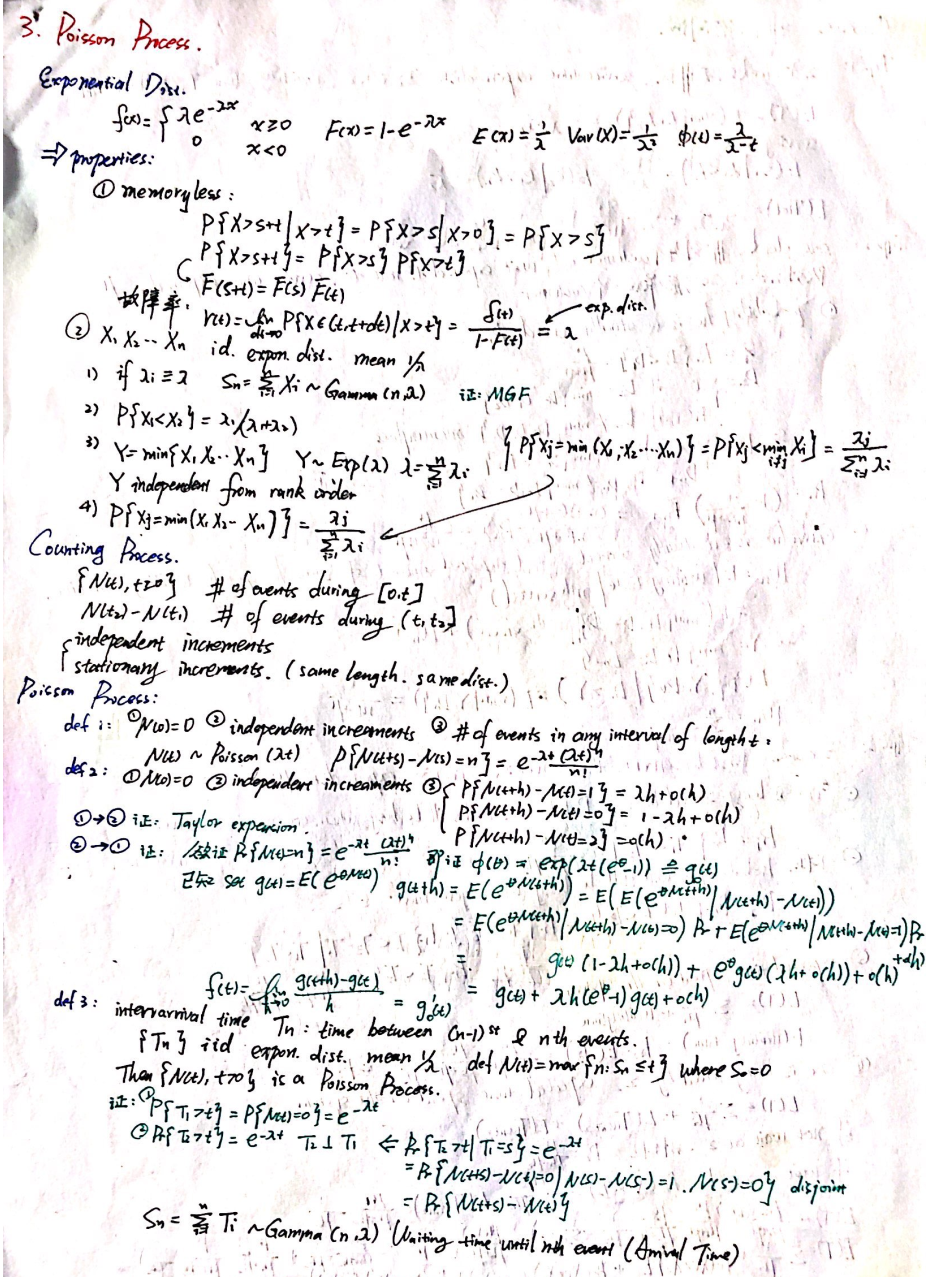 3. Poisson Process.
Exponential Dist.
f(x)= { λe^{-λx} x≥0
0 x<0
F(x)=1-e^{-λx} E(X)=1/λ Var(X)=1/λ² ϕ(t)=λ/(λ-t)
⇒ properties:
① memoryless:
P{X>s+t|X>t} = P{X>s|X>0} = P{X>s}
P{X>s+t} = P{X>s} P{X>t}
F̄(s+t)=F̄(s) F̄(t)
故障率. r(t)= lim_{dt→0} P{X∈(t,t+dt)|X>t} = f(t)/(1-F(t)) = λ ← exp. dist.
② X₁ X₂ -- Xn id. expon. dist. mean 1/λ
1) if λi≡λ Sn= Σ_{i=1}^n Xi ~ Gamma(n,λ) 证: MGF
2) P{X₁<X₂} = λ₁/(λ₁+λ₂)
3) Y=min{X₁ X₂... Xn} Y~ Exp(λ) λ=Σ_{i=1}^n λi } P{Xj=min(X₁,X₂....Xn)} = P{Xj<min_{i≠j} Xi} = λj/Σ_{i=1}^n λi
Y independent from rank order
4) P{Xj=min(X₁ X₂- Xn)} = λj/Σ_{i=1}^n λi
Counting Process.
{N(t), t≥0} # of events during [0,t]
N(t₂)-N(t₁) # of events during (t₁ t₂]
{ independent increments
stationary increments. (same length. same dist.)
Poisson Process:
def 1: ① N(0)=0 ② independent increaments ③ # of events in any interval of length t:
N(t) ~ Poisson (λt) P{N(t+s)-N(s)=n} = e^{-λt} (λt)^n/n!
def 2: ① N(0)=0 ② independent increaments ③ { P{N(t+h)-N(t)=1} = λh+o(h)
P{N(t+h)-N(t)=0} = 1-λh+o(h)
P{N(t+h)-N(t)=2} =o(h)
①→② 证: Taylor expersion.
②→① 证: 欲证 Pr{N(t)=n} = e^{-λt} (λt)^n/n! 即证 ϕ(θ) = exp(λt(e^θ-1)) ≜ g(t)
已知 set g(t)=E(e^{θN(t)}) g(t+h) = E(e^{θN(t+h)}) = E(E(e^{θN(t+h)}|N(t+h)-N(t)))
= E(e^{θN(t+h)}|N(t+h)-N(t)=0) Pr + E(e^{θN(t+h)}|N(t+h)-N(t)=1)Pr +o(h)
= g(t) (1-λh+o(h)) + e^θ g(t) (λh+o(h)) + o(h)
= g(t) + λh(e^θ-1) g(t) + o(h)
f(t)= lim_{h→0} (g(t+h)-g(t))/h = g'(t)
def 3: interarrival time Tn : time between (n-1)st & nth events.
{Tn} iid expon. dist. mean 1/λ. def N(t)=max{n: Sn ≤t} where S₀=0
Then {N(t), t>0} is a Poisson Process.
证: ① P{T₁>t} = P{N(t)=0} = e^{-λt}
② Pr{T₂>t} = e^{-λt} T₂⊥T₁ ⇐ Pr{T₂>t|T₁=s} = e^{-λt}
= Pr{N(t+s)-N(t)=0|N(s)-N(s-)=1. N(s-)=0} disjoint
= Pr{N(t+s)-N(t)}
Sn = Σ_{i=1}^n Ti ~Gamma (n.λ) Waiting time until nth event (Arrival Time)